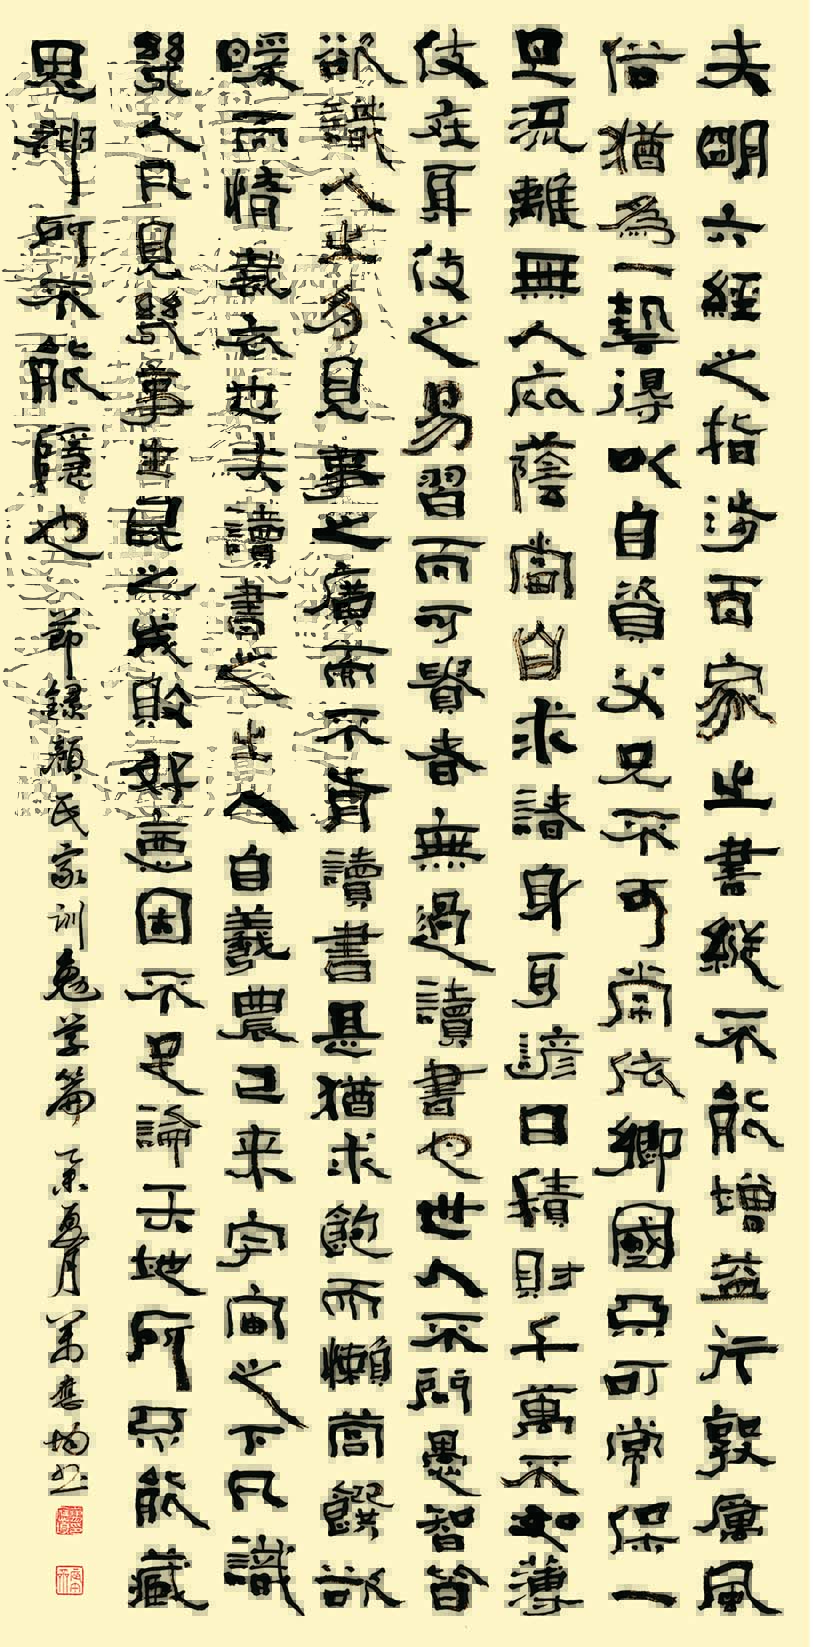 夫明六經之指涉百家之書縱不能增益行敦厲風
俗猶為一藝得以自資父兄不可常依鄉國不可常保一
旦流離無人庇蔭當自求諸身耳諺曰積財千萬不如薄
伎在身伎之易習而可貴者無過讀書也世人不問愚智皆
欲識人之多見事之廣而不肯讀書是猶求飽而懶營饌欲
暖而惰裁衣也夫讀書之人自羲農已来宇宙之下凡識
幾人凡見幾事生民之成敗好惡固不足論天地所不能藏
鬼神所不能隱也 節錄顏氏家训勉学篇 乙未夏月 萬應均书